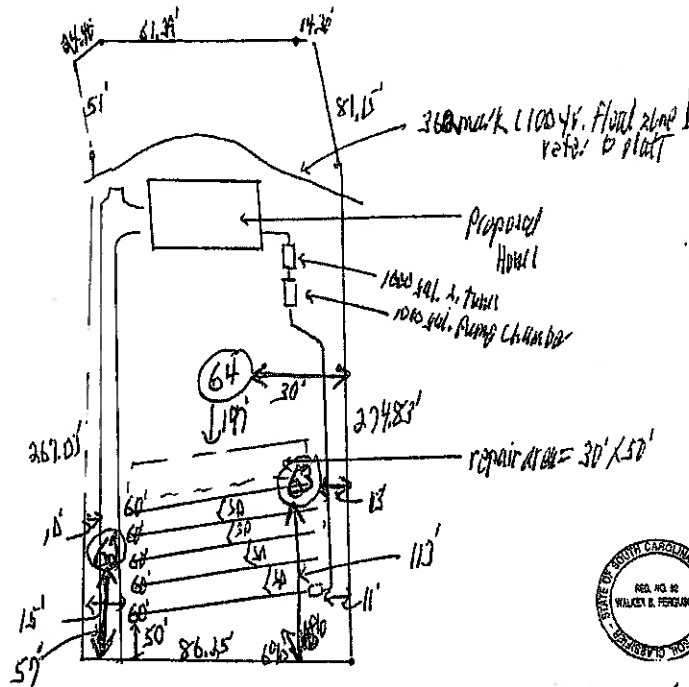 24.40'
61.39'
14.30'
51'
81.15'
360 mark (100 yr. flood zone)
refer to platt
Proposed
House
1000 gal. s. tank
1000 gal. Pump Chamber
64
30'
197'
274.83'
267.03'
repair area = 30' X 50'
63
13'
10'
60'
60'
60'
60'
60'
113'
11'
15'
50'
57'
86.25'
STATE OF SOUTH CAROLINA
REG. NO. 92
SOIL CLASSIFIER